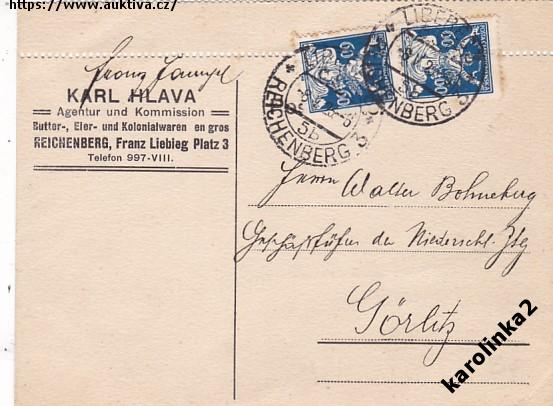 https://www.auktiva.cz/
Franz
KARL HLAVA
Agentur und Kommission
Butter-, Eier- und Kolonialwaren en gros
REICHENBERG, Franz Liebig Platz 3
Telefon 997-VIII.
LIBER
REICHENBERG 3
5b
REICHENBERG 3
60
60
Herrn Walter Bohneberg
Geschäftsführer der Niederschl. Ztg
Görlitz
karolinka2